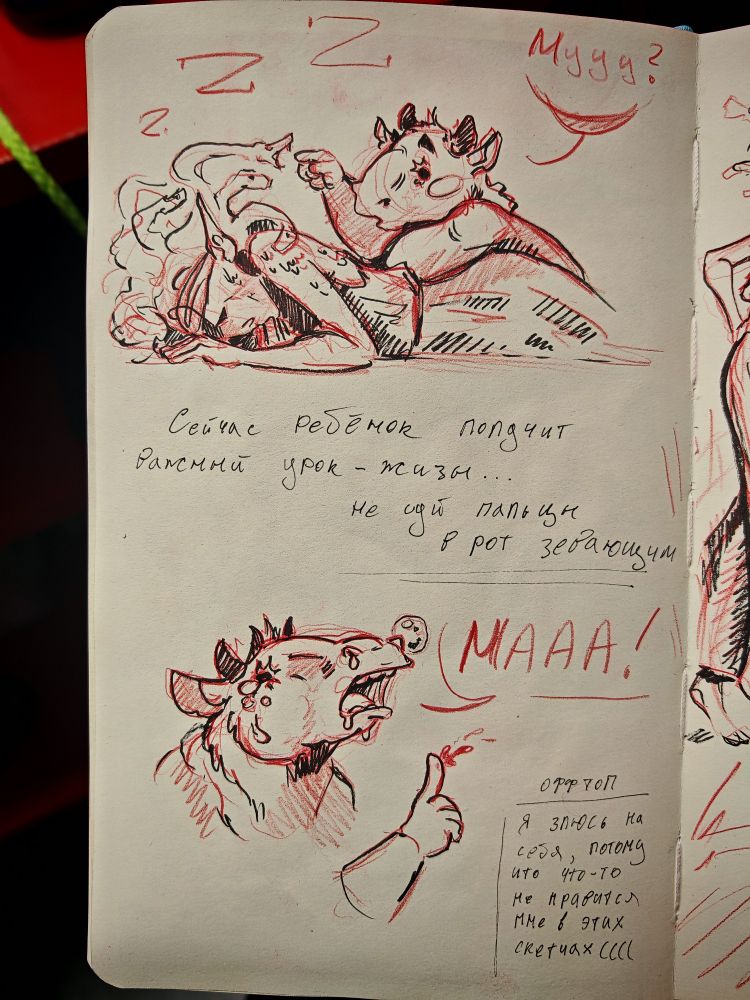 z
Z
Z
Мууу?
Сейчас ребёнок получит
важный урок - жизы...
не суй пальцы
в рот зевающим
МАААА!
ОФФТОП
Я злюсь на
себя, потому
что что-то
не нравится
мне в этих
скетчах((((